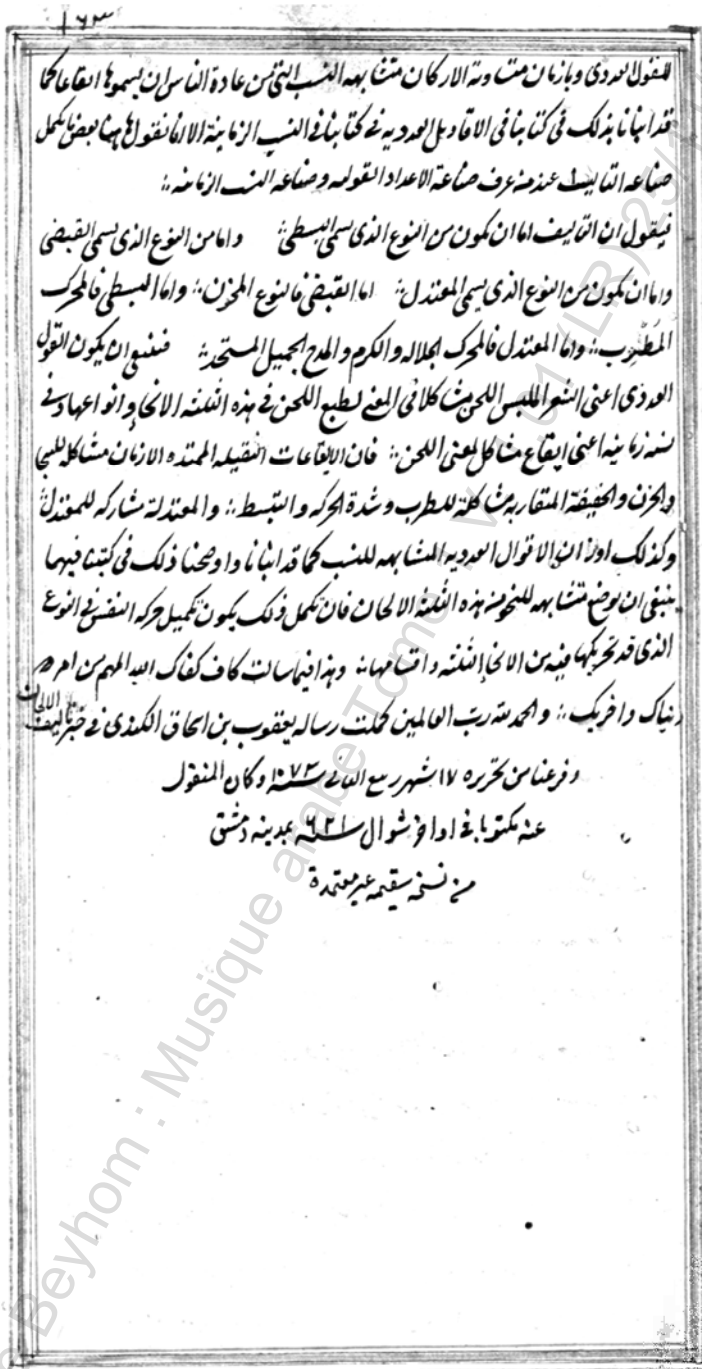 ١٦٣
للقول العددى وبازمان متساوية الاركان متشابهه النسب التى من عادة الناس ان يسموها ايقاعا كما
قد ابانا بذلك فى كتابنا فى الاقاويل العدديه و فى كتابنا فى النسب الزمانية الا انا نقول هاهنا بعض ما يكمل
صناعه التاليف عند من عرف صناعة الاعداد القوليه وصناعه النسب الزمانيه
فيقول ان التاليف اما ان يكون من النوع الذى يسمى البسطى واما من النوع الذى يسمى القبضى
واما ان يكون من النوع الذى يسمى المعتدل اما القبضى فالنوع المحزن واما البسطى فالمحرك
المطرب واما المعتدل فالمحرك الجلاله والكرم والمدح الجميل المستحد فينبغى ان يكون القول
العددى اعنى الشعر الملبس اللحن مشاكلا فى المعنى لطبع اللحن فى هذه الثلثه الانحا وانواعها و فى
نسبه زمانيه اعنى ايقاع مشاكل لمعنى اللحن فان الايقاعات الثقيله الممتده الازمان مشاكله للشجا
والحزن والخفيفة المتقاربه مشاكلة للطرب وشدة الحركه والتبسط والمعتدلة مشاركه للمعتدل
وكذلك اوزان الاقوال العدديه المشابهه للنسب كما قد ابانا واوضحنا ذلك فى كتبنا فيهما
ينبغى ان توضع متشابهه للنحو من هذه الثلثه الالحان فان تكمل ذلك يكون تكميل حركه النفس فى النوع
الذى قد تحريكها فيه من الانحا الثلثه واقسامها وهذا فيما سالت كاف كفاك الله المهم من امر
دنياك واخريك والحمد لله رب العالمين كملت رساله يعقوب بن اسحاق الكندى فى خبر تاليف الالحان
وفرغنا من تحريره ١٧ شهر ربيع الثانى سنه ١٠٧٣ وكان المنقول
عنه مكتوبا فى اواخر شوال سنه ٦٢١ بمدينه دمشق
من نسخه سقيمه غير معتمدة
Beyhom : Musique arabe Tome I v. 1.01 (LR) 25/